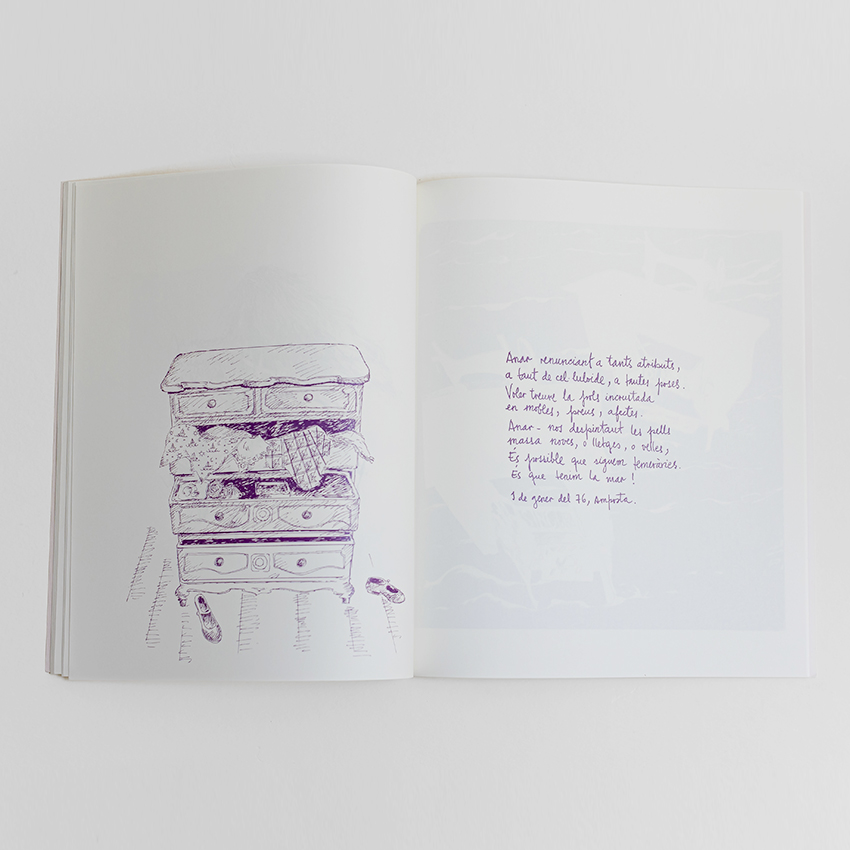 Anar renunciant a tants atributs,
a tant de cel , a tantes poses.
Voler treure la pols incrustada
en mobles, preus, afectes.
Anar-nos despintant les pells
massa noves, o lletges, o velles,
És possible que siguem temeràries.
És que tenim la mar!
1 de gener del 76, Amposta.